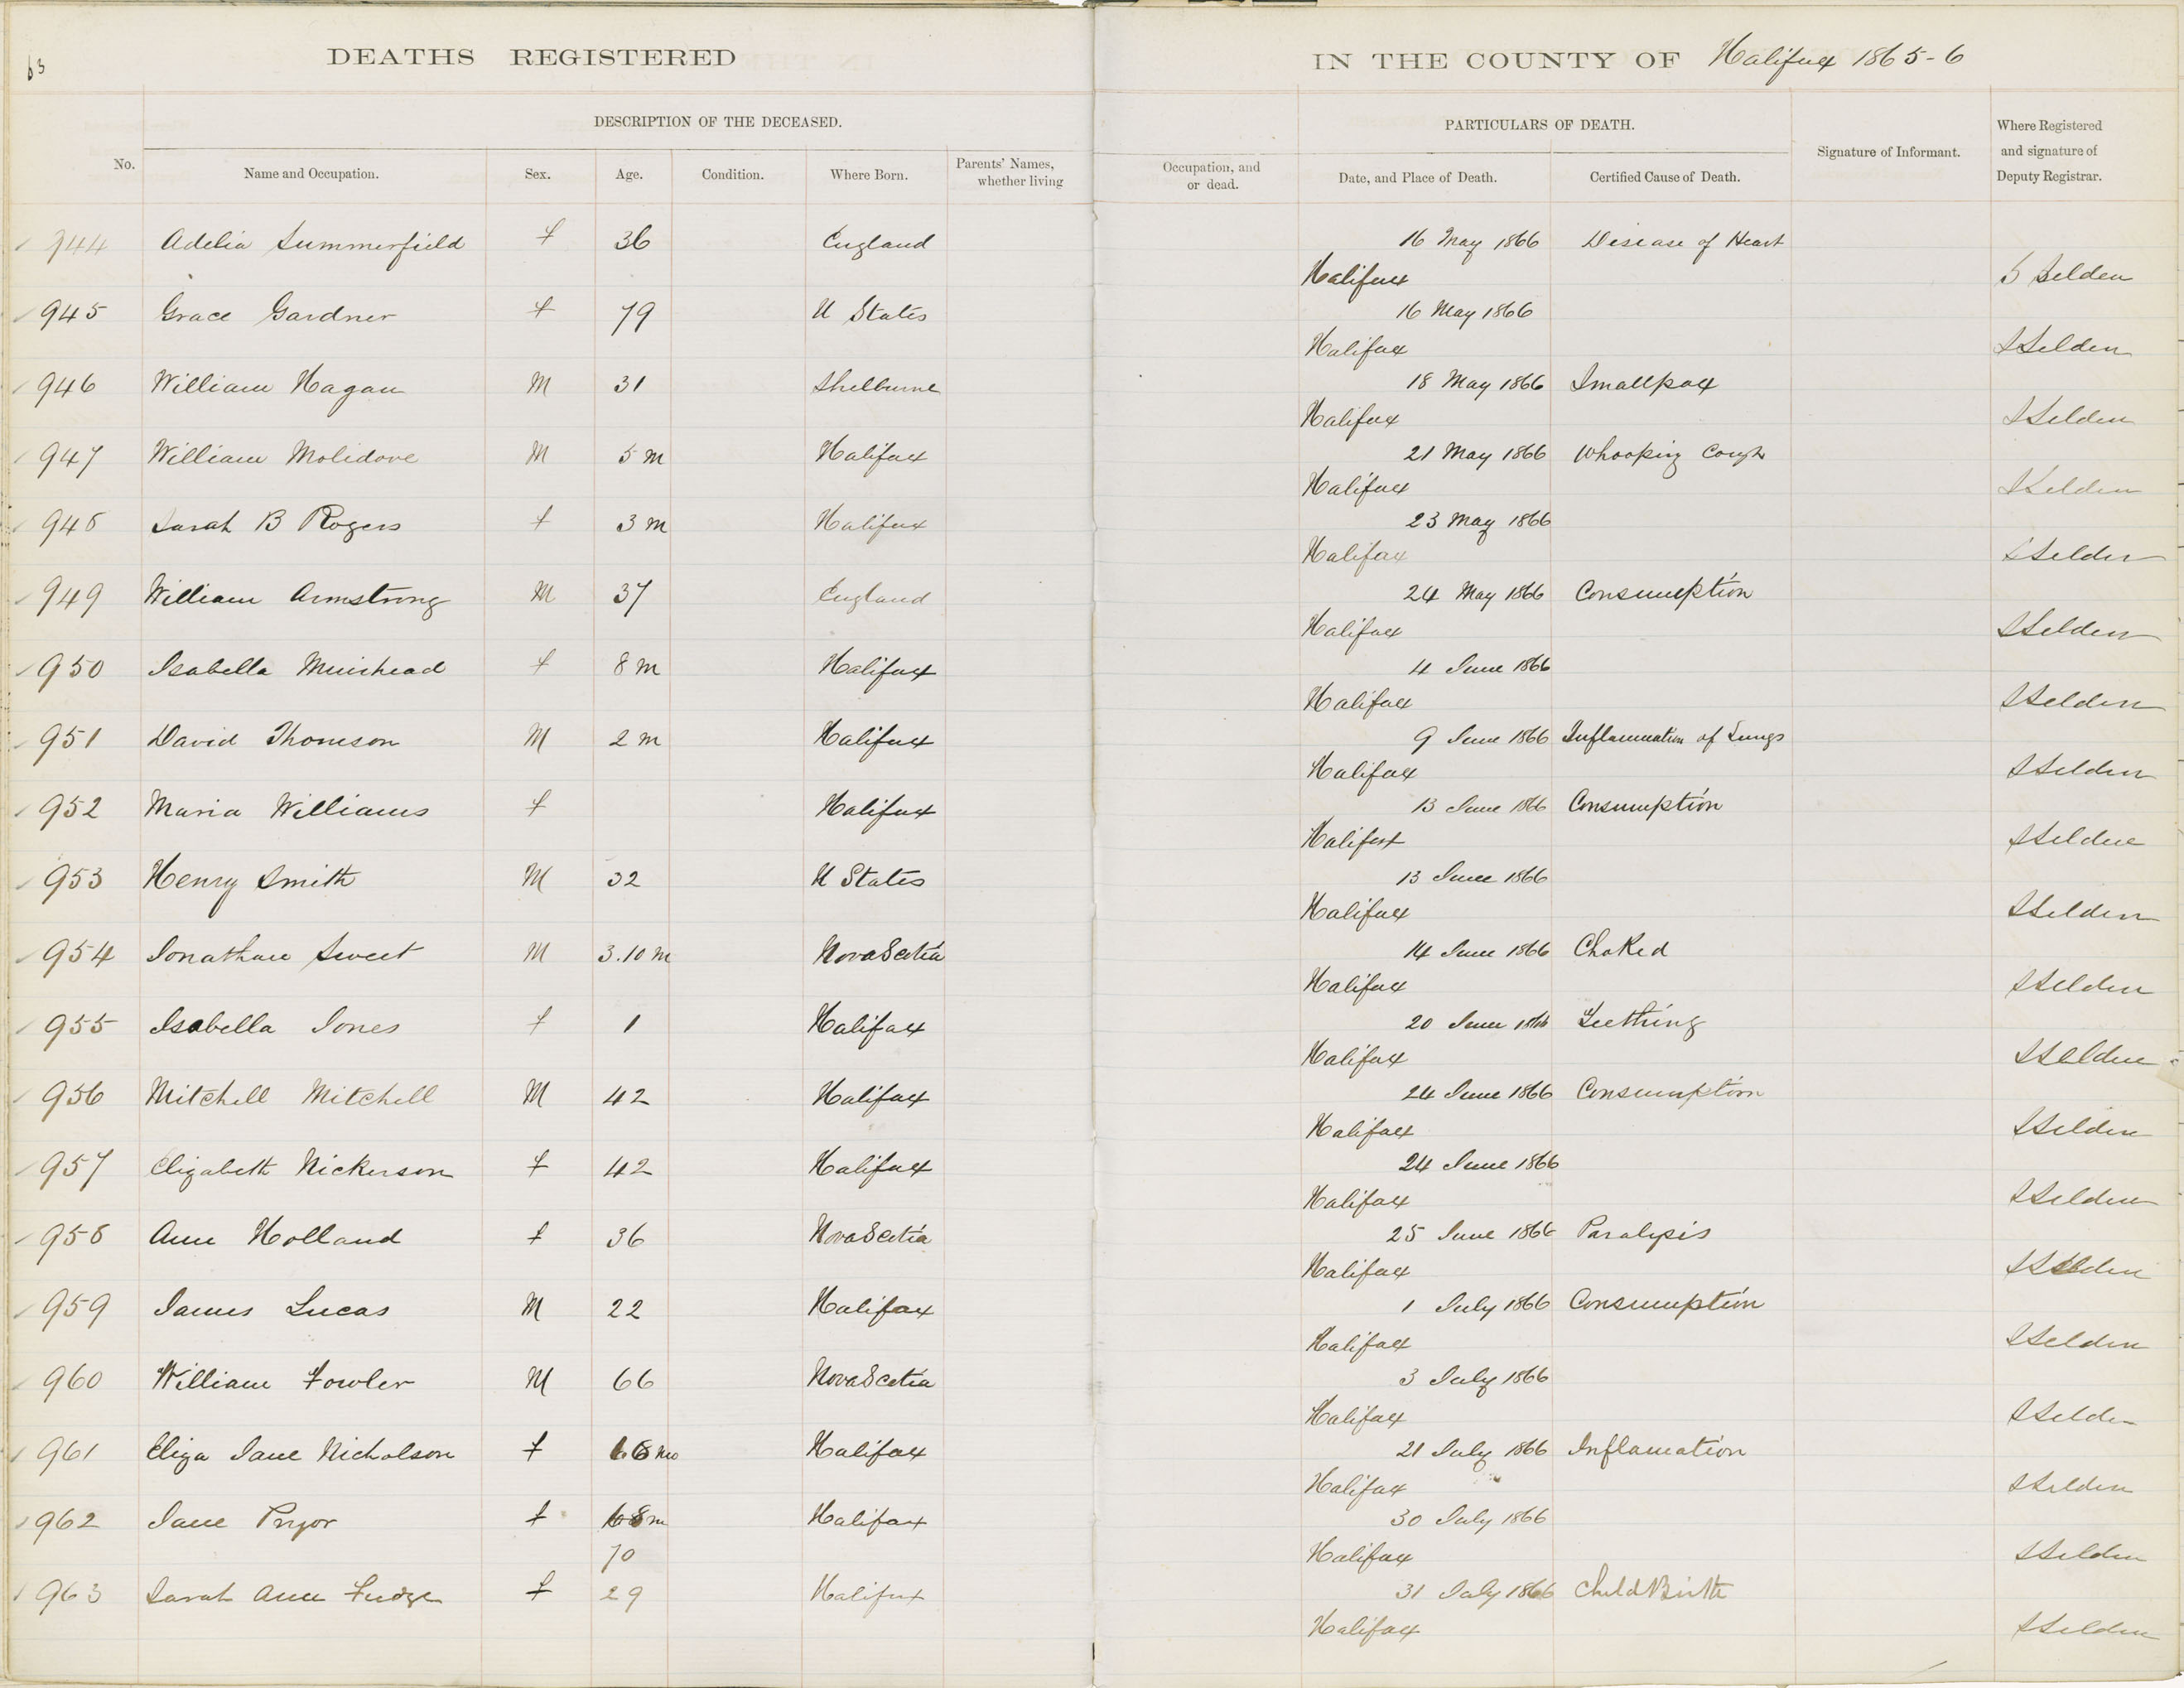 63
DEATHS REGISTERED IN THE COUNTY OF Halifax 1865-6
DESCRIPTION OF THE DECEASED. PARTICULARS OF DEATH.
No. Name and Occupation. Sex. Age. Condition. Where Born. Parents' Names, whether living Occupation, and or dead. Date, and Place of Death. Certified Cause of Death. Signature of Informant. Where Registered and signature of Deputy Registrar.
944 Adelia Summerfield f 36 England 16 May 1866 Disease of Heart
Halifax S Selden
945 Grace Gardner f 79 U States 16 May 1866
Halifax S Selden
946 William Hagan M 31 Shelburne 18 May 1866 Smallpox
Halifax S Selden
947 William Molidove M 5 m Halifax 21 May 1866 Whooping Cough
Halifax S Selden
948 Sarah B Rogers f 3 m Halifax 23 May 1866
Halifax S Selden
949 William Armstrong M 37 England 24 May 1866 Consumption
Halifax S Selden
950 Isabella Muirhead f 8 m Halifax 4 June 1866
Halifax S Selden
951 David Thomson M 2 m Halifax 9 June 1866 Inflammation of Lungs
Halifax S Selden
952 Maria Williams f Halifax 13 June 1866 Consumption
Halifax S Selden
953 Henry Smith M 32 U States 13 June 1866
Halifax S Selden
954 Jonathan Sweet M 3.10 m Nova Scotia 14 June 1866 Choked
Halifax S Selden
955 Isabella Jones f 1 Halifax 20 June 1866 Teething
Halifax S Selden
956 Mitchell Mitchell M 42 Halifax 24 June 1866 Consumption
Halifax S Selden
957 Elizabeth Nickerson f 42 Halifax 24 June 1866
Halifax S Selden
958 Ann Holland f 36 Nova Scotia 25 June 1866 Paralysis
Halifax S Selden
959 James Lucas M 22 Halifax 1 July 1866 Consumption
Halifax S Selden
960 William Fowler M 66 Nova Scotia 3 July 1866
Halifax S Selden
961 Eliza Jane Nicholson f Halifax 21 July 1866 Inflamation
Halifax S Selden
962 Jane Pryor f Halifax 30 July 1866
70 Halifax S Selden
963 Sarah Ann Fudge f 29 Halifax 31 July 1866 Child Birth
Halifax S Selden